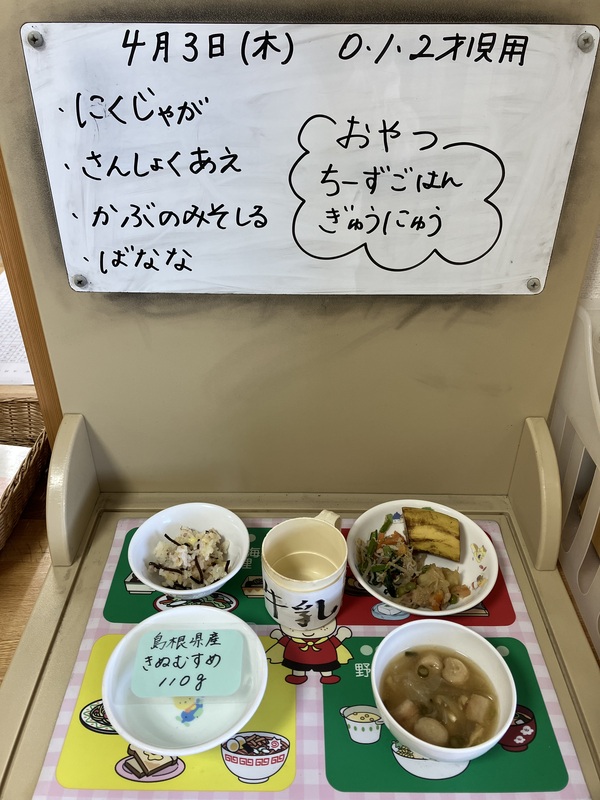 4月3日(木) 0.1.2才児用
・にくじゃが
・さんしょくあえ
・かぶのみそしる
・ばなな
おやつ
ちーずごはん
ぎゅうにゅう
牛乳
島根県産
きぬむすめ
110g
野